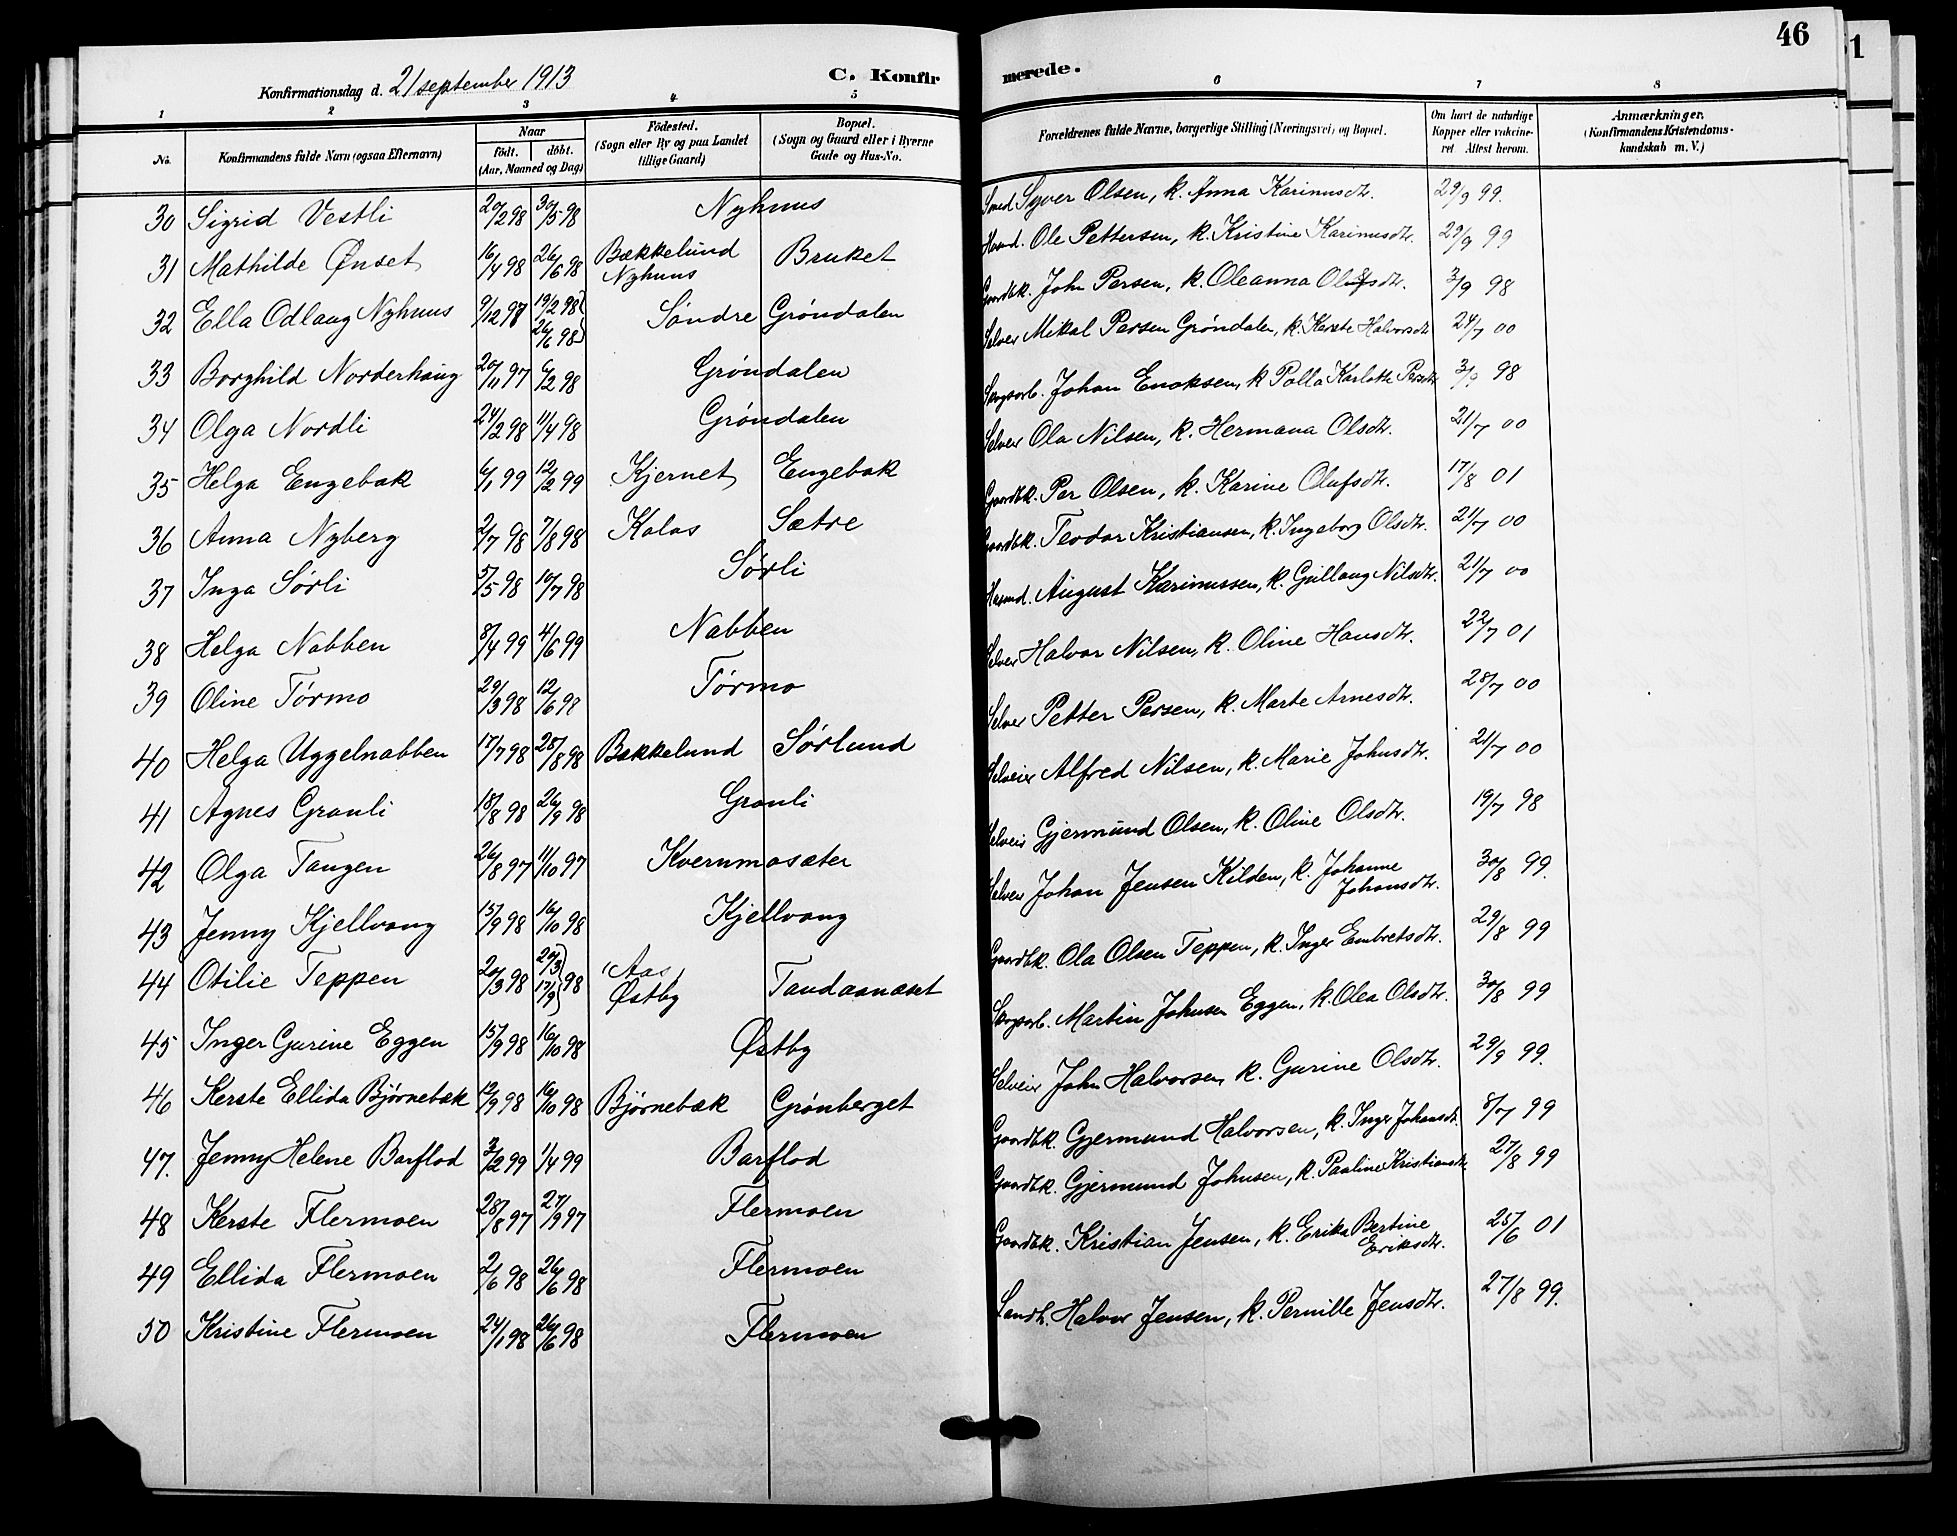 46
1
Konfirmationsdag d. 21 september 1913
C. Konfirmerede.
1 2 3 4 5 6 7 8
No. Konfirmandens fulde Navn (ogsaa Efternavn) Naar født. døbt. (Aar, Maaned og Dag) Fødested. (Sogn eller By og paa Landet tillige Gaard) Bopæl. (Sogn og Gaard eller i Byerne Gade og Hus-No. Forældrenes fulde Navne, borgerlige Stilling (Næringsvei) og Bopæl. Om havt de naturlige Kopper eller vakcineret Attest herom. Anmærkninger. (Konfirmandens Kristendomskundskab m. V.)
30 Sigrid Vestli 20/2 98 30/5 98 Nyhuus Smed Syver Olsen, k. Anna Karinusdtr. 29/9 99.
31 Mathilde Ønset 16/4 98 26/6 98 Bækkelund Nyhuus Bruket Husmd. Ole Pettersen, k. Kristine Karinusdtr. 29/9 99
32 Ella Odlaug Nyhuus 9/12 97 19/2 98 26/6 98 Søndre Grøndalen Gaardbk. John Persen, k. Oleanna Olufsdtr. 3/9 98
33 Borghild Norderhaug 20/11 97 6/2 98 Grøndalen Selveier Mikal Persen Grøndalen, k. Kerste Halvorsdtr 24/7 00
34 Olga Nordli 24/2 98 11/4 98 Grøndalen Skogsarb. Johan Enoksen, k Polla Karlotte Persdtr 3/9 98
35 Helga Engebak 6/1 99 12/2 99 Kjernet Engebak Selveier Ola Nilsen, k. Hermana Olsdtr. 21/7 00
36 Anna Nyberg 2/7 98 7/8 98 Kolos Sætre Gaardbk. Per Olsen, k. Karine Olufsdtr. 17/8 01
37 Inga Sørli 5/5 98 10/7 98 Sørli Gaardbk. Teodor Kristiansen, k. Ingeborg Olsdtr. 21/7 00
38 Helga Nabben 8/4 99 4/6 99 Nabben Husmd. August Karinussen, k. Gullaug Nilsdtr. 21/7 00
39 Oline Tørmo 29/3 98 12/6 98 Tørmo Selveier Halvor Nilsen, k. Oline Hansdtr. 22/7 01
40 Helga Uggelnabben 17/7 98 28/8 98 Bækkelund Sørlund Selveier Petter Persen, k. Marte Arnesdtr. 28/7 00
41 Agnes Granli 18/8 98 26/9 98 Granli Selveier Alfred Nilsen, k. Marie Johnsdtr. 21/7 00
42 Olga Tangen 26/8 97 11/10 97 Kvernmosæter Selveier Gjermund Olsen, k. Oline Olsdtr. 19/7 98
43 Jenny Kjellvang 15/9 98 16/10 98 Kjellvang Selveier Johan Jensen Kilden, k. Johanne Johansdtr. 30/8 99.
44 Otilie Teppen 20/3 98 20/3 17/9 98 Aas Østby Tandaanæset Gaardbk. Ola Olsen Teppen, k. Inger Embretsdtr. 29/8 99
45 Inger Gurine Eggen 15/9 98 16/10 98 Østby Skogsarb. Martin Johnsen Eggen, k. Olea Olsdtr. 30/8 99
46 Kerste Ellida Bjørnebæk 12/9 98 16/10 98 Bjørnebæk Grønberget Selveier John Halvorsen k. Gurine Olsdtr. 29/9 99.
47. Jenny Helene Barflod 3/2 99 1/4 99 Barflod Gaardbk. Gjermund Halvorsen, k. Inger Johansdtr. 8/7 99
48 Kerste Flermoen 28/8 97 27/9 97 Flermoen Gaardbk. Gjermund Johnsen, k. Pauline Kristiansdtr 27/8 99
49 Ellida Flermoen 2/6 98 26/6 98 Flermoen Gaardbk. Kristian Jensen, k. Erika Bertine Eriksdtr. 25/6 01
50 Kristine Flermoen 24/1 98 26/6 98 Flermoen Landh. Halvor Jensen, k. Pernille Jensdtr. 27/8 99.